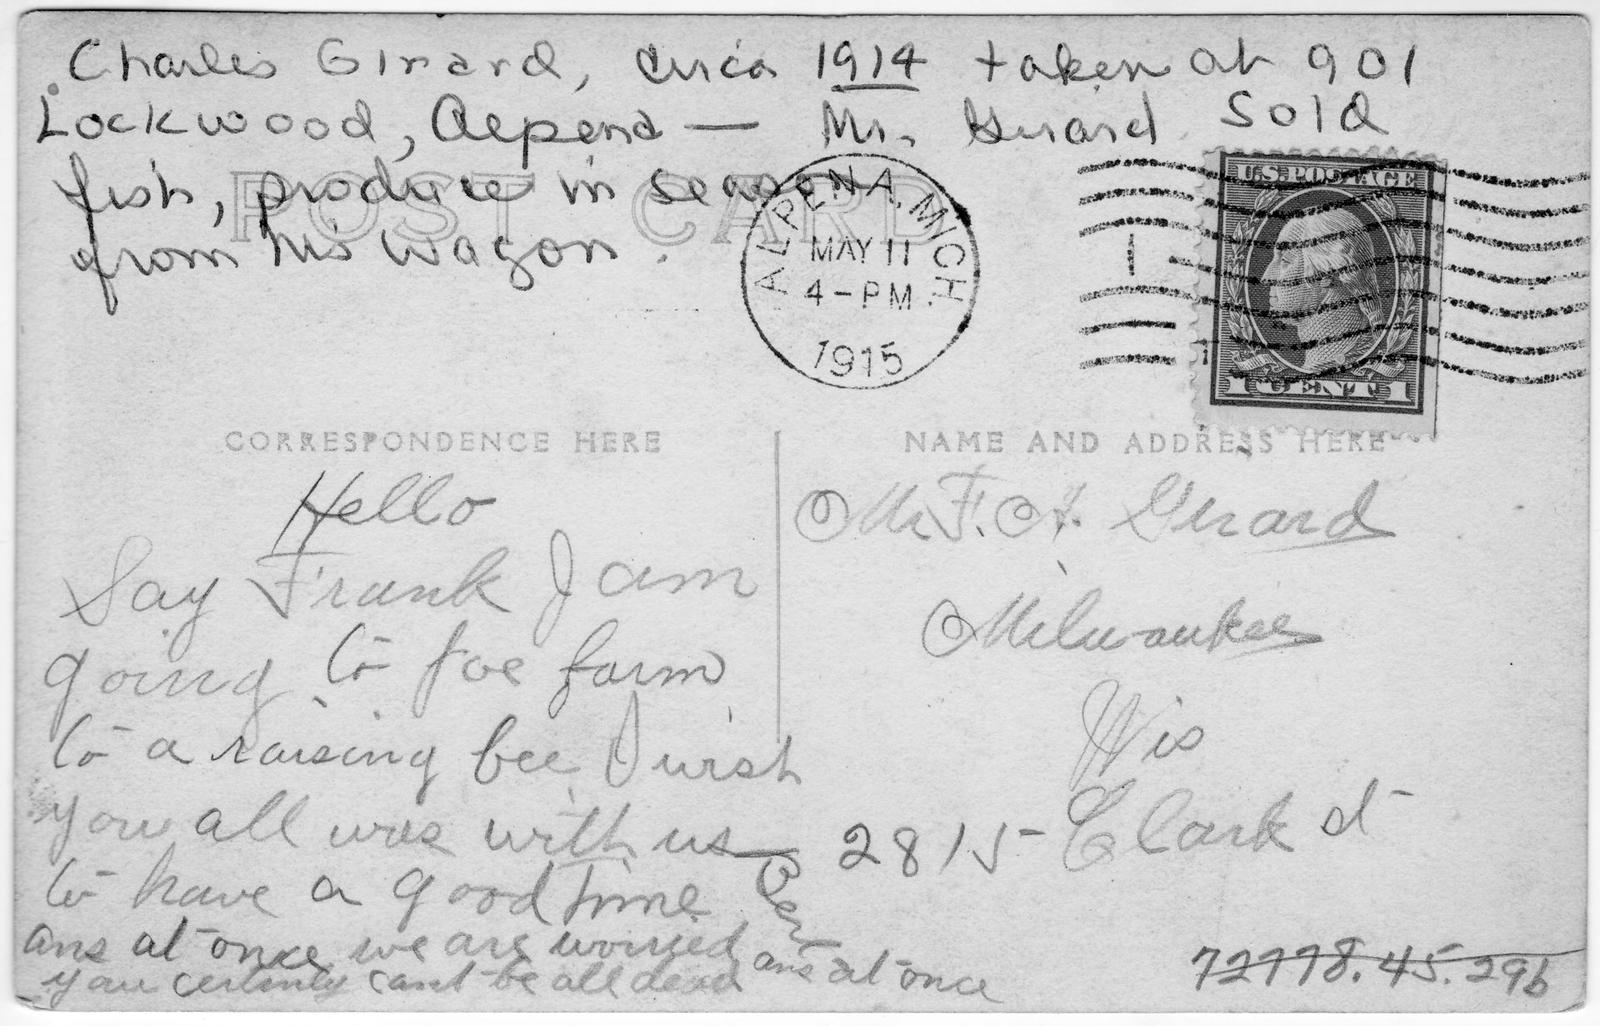 Charles Girard, circa 1914 taken at 901
Lockwood, Alpena — Mr. Girard sold
fish, produce in season
from his wagon.
POST CARD
ALPENA, MICH.
MAY 11
4-PM
1915
1
U.S. POSTAGE
1 CENT 1
CORRESPONDENCE HERE
Hello
Say Frank I am
going to Joe farm
to a raising bee I wish
you all was with us
to have a good time
Ben
ans at once we are worried
ans at once
you certinly cant be all dead
NAME AND ADDRESS HERE
Mr F. A. Girard
Milwaukee
Wis
2815 Clark st
72998.45.296